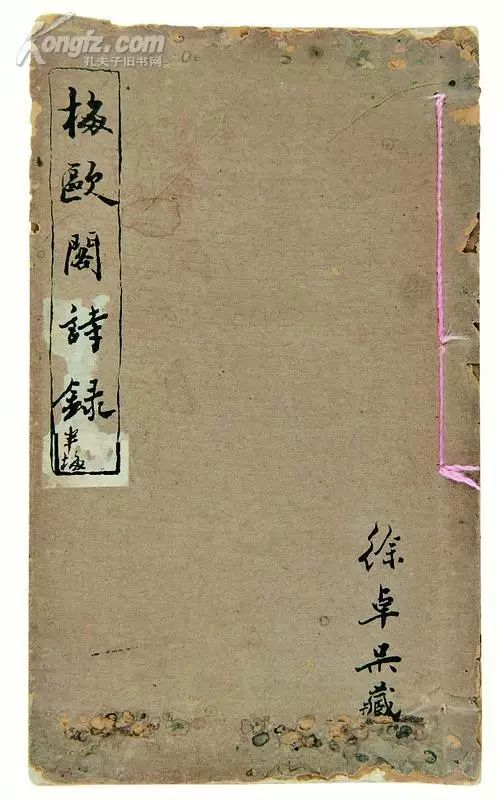 Kongfz.com
孔夫子旧书网
梅歐閣詩録
半梅
徐卓呆藏